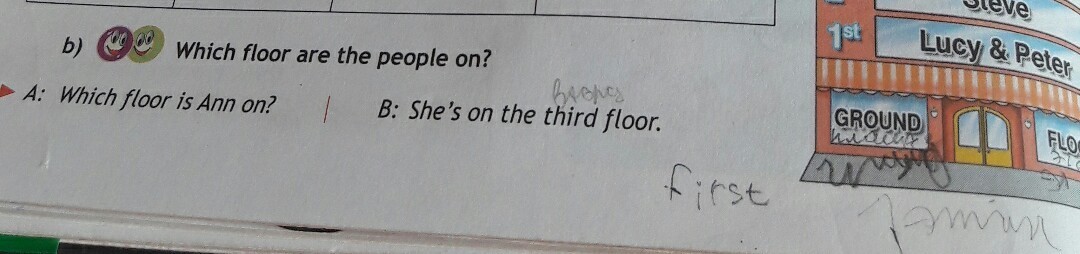 Steve
1st Lucy & Peter
b) Which floor are the people on?
A: Which floor is Ann on? B: She's on the third floor.
GROUND FLOO
first